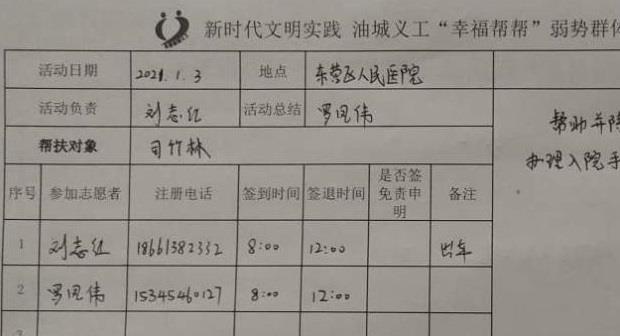 新时代文明实践 油城义工“幸福帮帮”弱势群体
活动日期 2021.1.3 地点 东营区人民医院
活动负责 刘志红 活动总结 罗凤伟
帮扶对象 司竹林
帮助并陪
办理入院手
序号 参加志愿者 注册电话 签到时间 签退时间 是否签免责申明 备注
1 刘志红 18661382332 8:00 12:00 出车
2 罗凤伟 15345460127 8:00 12:00